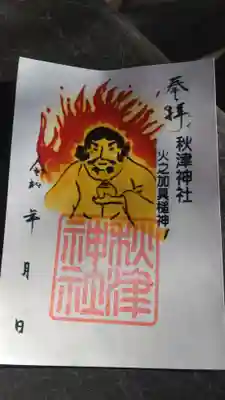 奉拝
秋津神社
火之加具槌神
令和　年　月　日
秋津
神社